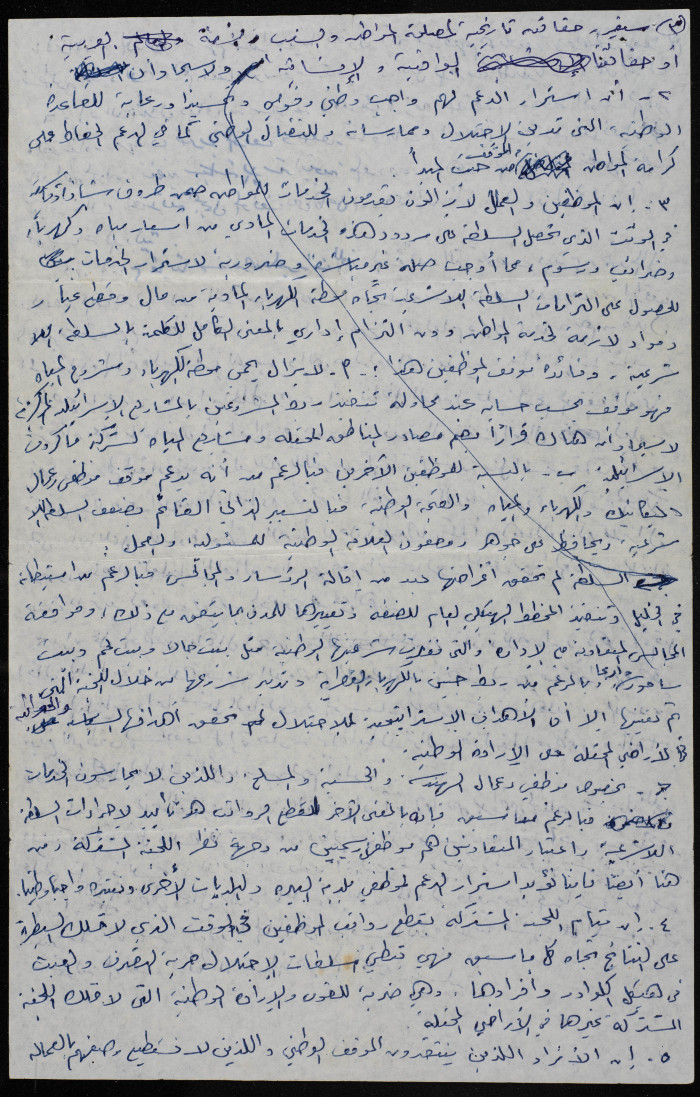 (٣) سيفرز حقائق تاريخية لمصلحة المواطن والشعب والأمة العربية.
أو حقائقنا الواقعية والإنسانية ولا سيما وأن
٢ - أن استمرار الدعم لهم واجب وطني وقومي وتجسيداً ورعاية للقاعدة
الوطنية التي تدعى الاحتلال وممارساته وللنضال الوطني كما في الدعم الحفاظ على
كرامة المواطن الموقف من حيث المبدأ.
٣ - إن الموظفين والعمال لا يزالون يقدمون الخدمات للمواطن ضمن ظروف شاذة
في الوقت الذي تحصل السلطة على مردود هذه الخدمات المادي من أسعار مياه وكهرباء
وضرائب ورسوم، مما أوجب صلة غير مباشرة وضرورية لاستمرار الخدمات
للحصول على التزامات السلطة اللاشرعية تجاه محطة الكهرباء المادية من مال وقطع غيار
ومواد لازمة لخدمة المواطن دون التزام إداري بالمعنى الكامل للكلمة بالسلطة اللا
شرعية. وفائدة موقف الموظفين هنا: - ٢ - لا يزال يحمي محطة الكهرباء ومشروع المياه
فهو موقف يحسب حسابه عند محاولة تنفيذ ربط المشروعين بالمشاريع الإسرائيلية
لا سيما وأن هناك قراراً بضم مصادر المناطق المحتلة ومشاريع المياه لشركة ماكروت
الإسرائيلية. ب - بالنسبة للموظفين الآخرين فبالرغم من أنه يدعم موقف موظفي وعمال
الميكانيك والكهرباء والمياه والصحة الوطنية فالتسيير الذاتي القائم يضعف السلطة اللا
شرعية ويحافظ على جوهر ومضمون العلاقة الوطنية للمسئولية والعمل.
السلطة لم تحقق أغراضها عبر من إقالة الرؤساء والمجالس فبالرغم من استيطانه
في الخليل وتنفيذ المخطط الهيكلي العام للضفة وتغييرها للمدن بما يتفق مع ذلك، وموافقة
المجالس المتعاونة مع الإدارة والتي فقدت شرعيتها الوطنية مثل بيت جالا وبيت لحم وبيت
ساحور وأريحا، بالرغم من ربط جنين بالكهرباء القطرية وتدمير مشروعها من خلال اللجنة التي
تم تعيينها إلا أن الأهداف الاستراتيجية للاحتلال لم تحقق أهدافها السياسية
في الأراضي المحتلة على الإرادة الوطنية.
ج - بخصوص موظفي وعمال الهندسة والحسبة والمسلخ واللذين لا يمارسون الخدمات
فبالرغم معاشهم فإنه بالمعنى الآخر لقطع الرواتب هو تأييد لإجراءات السلطة
اللاشرعية واعتبار المتقاعدين هم موظفين رسميين من وجهة نظر اللجنة المشتركة ومن
هنا أيضا فإننا نؤيد استمرار الدعم لموظفي بلدية البيره والبلديات الأخرى ونعتبره واجبا وطنيا.
٤ - إن قيام اللجنة المشتركة بقطع رواتب الموظفين في الوقت الذي لا تملك السيطرة
على النتائج تجاه كل ما سبق فهي تعطي سلطات الاحتلال حرية التصرف والعبث
في هيكل الكوادر وأفرادها. وهي ضربة للقوى والإرادة الوطنية التي لا تملك اللجنة
المشتركة غيرها في الأراضي المحتلة.
٥ - إن الأفراد اللذين ينتقدون الموقف الوطني واللذين لا نستطيع وصفهم بالعمالة